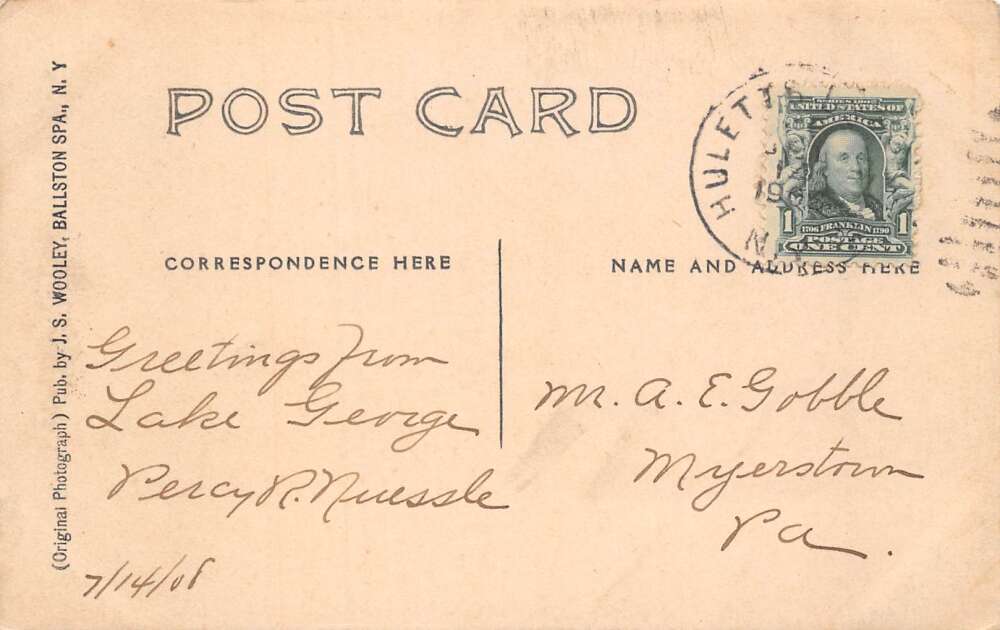 POST CARD
(Original Photograph) Pub. by J. S. WOOLEY, BALLSTON SPA., N. Y
HULETTS
19
N
SERIES 1902
UNITED STATES OF
AMERICA
1 1
1706 FRANKLIN 1790
POSTAGE
ONE CENT
CORRESPONDENCE HERE
NAME AND ADDRESS HERE
Greetings from
Lake George
Percy R. Nuessle
7/14/08
Mr. A. E. Gobble
Myerstown
Pa.